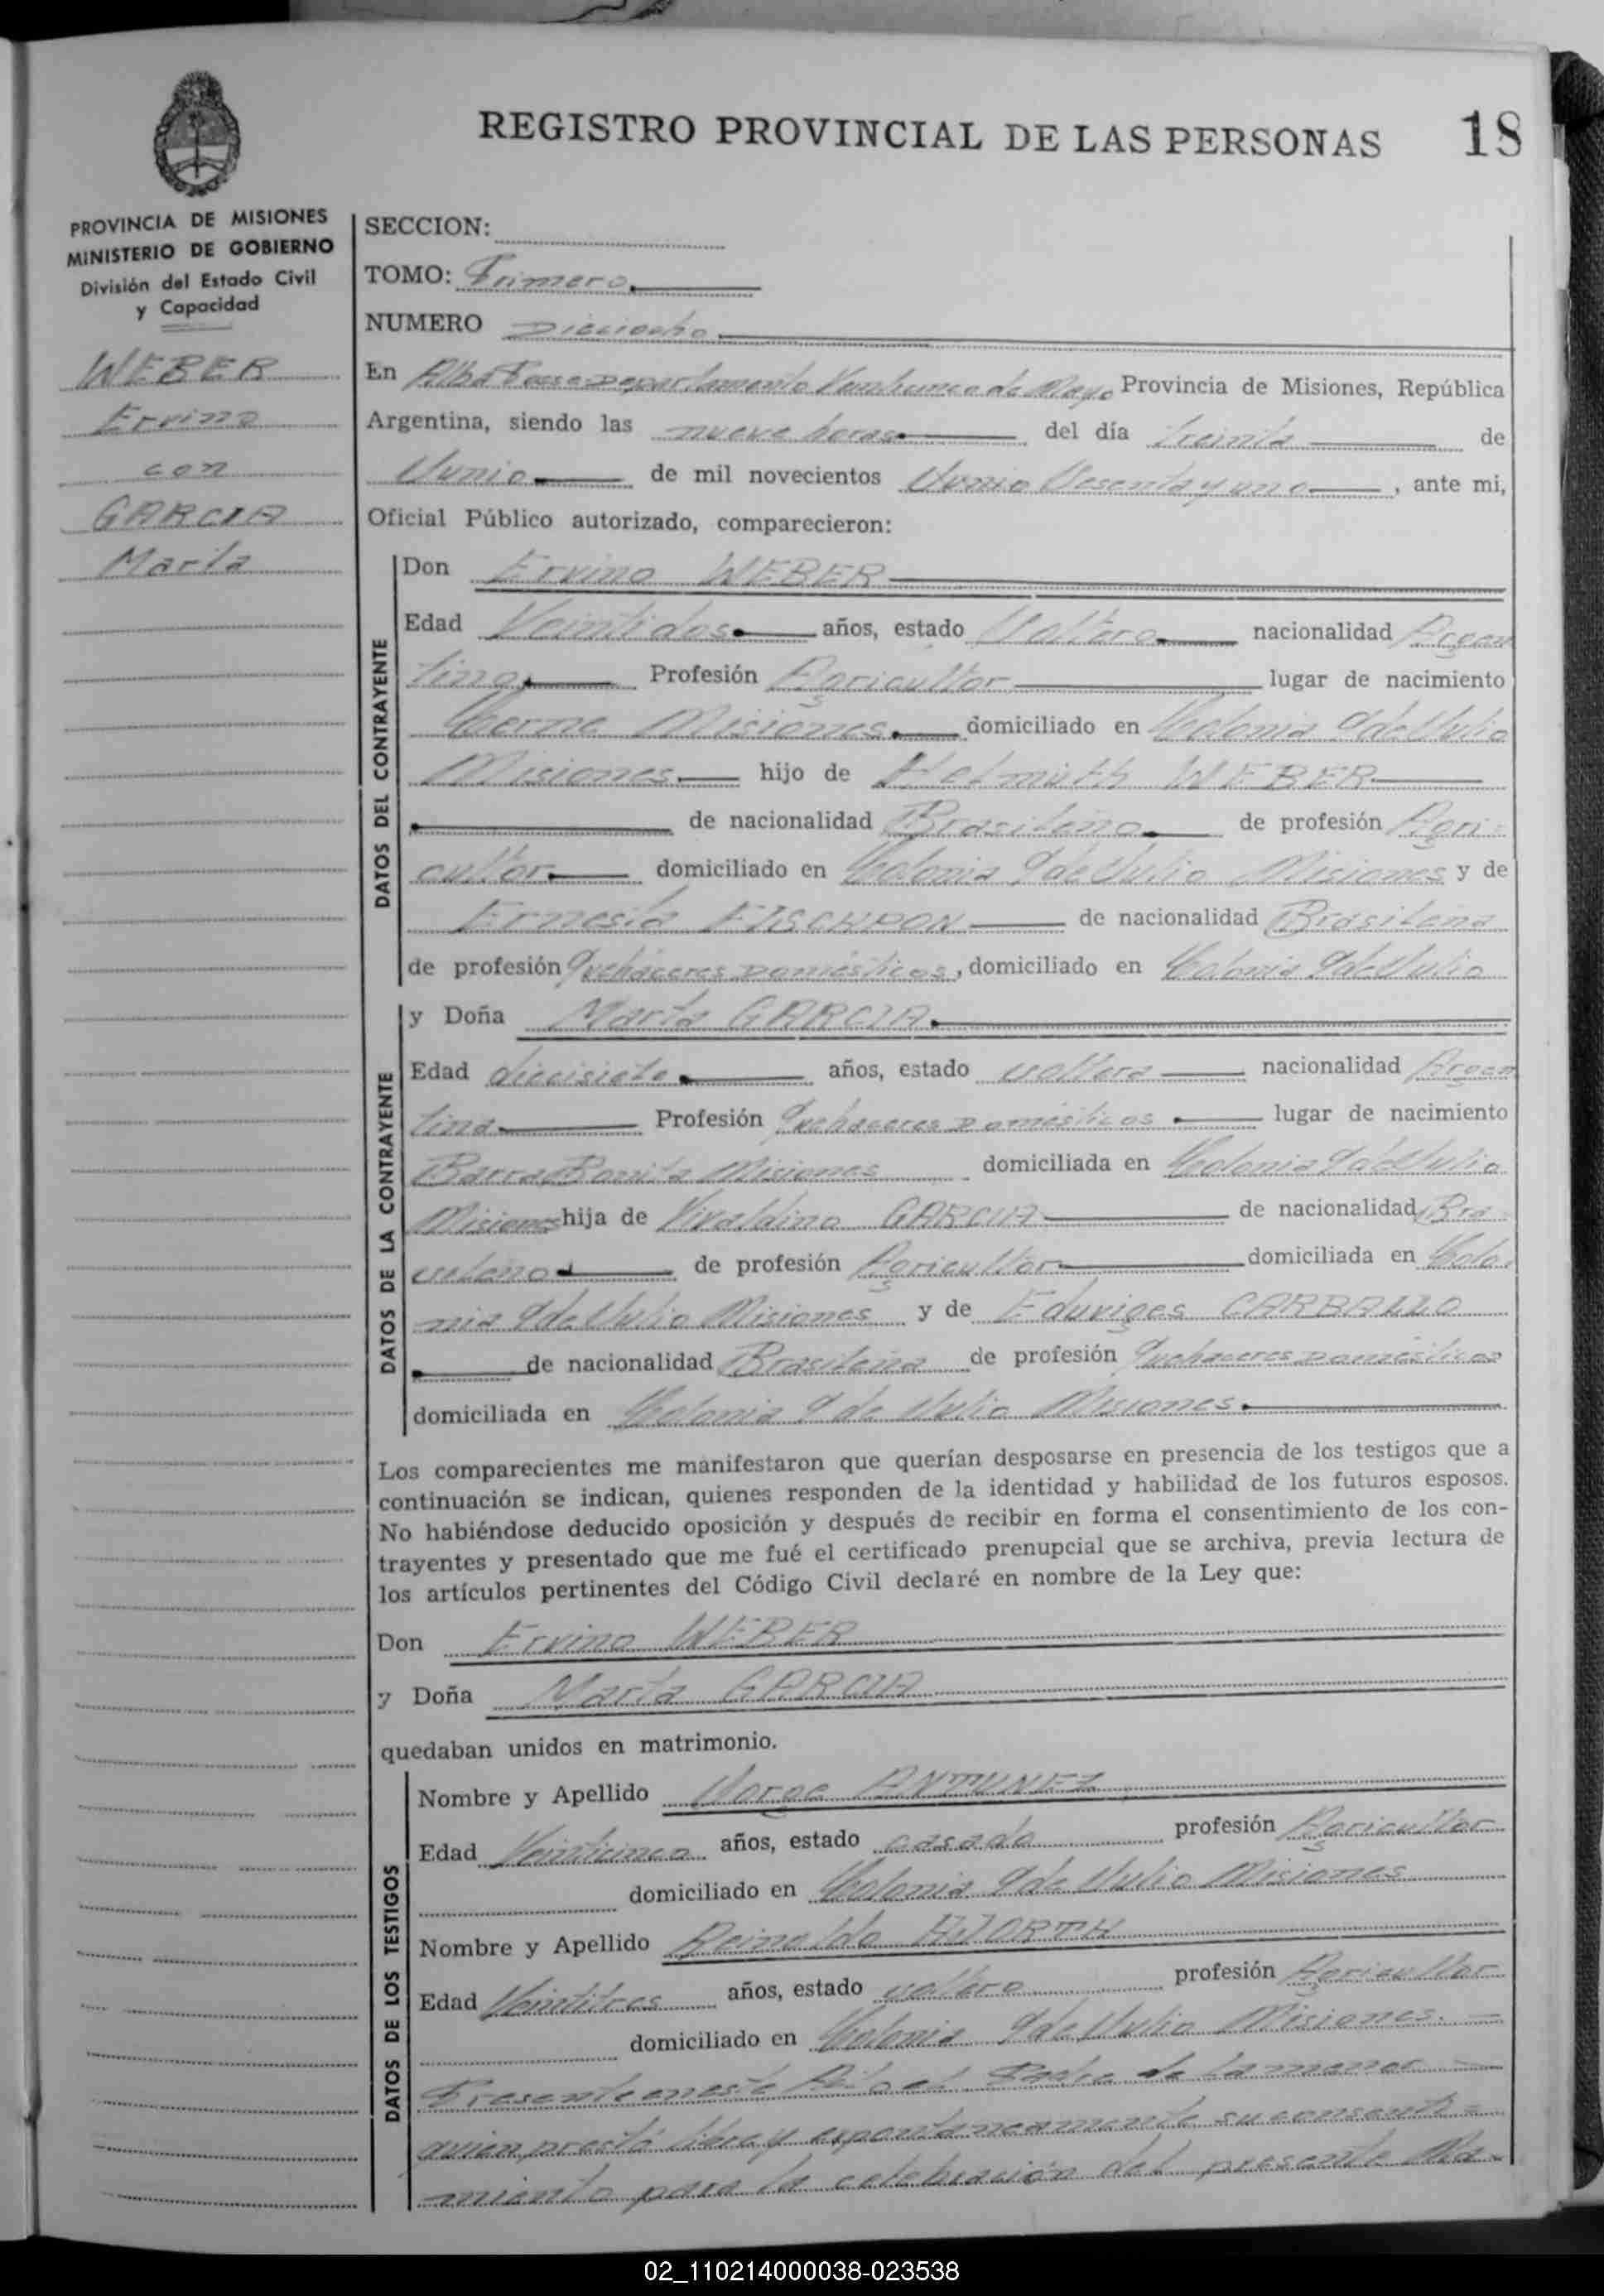 REGISTRO PROVINCIAL DE LAS PERSONAS 18
PROVINCIA DE MISIONES
MINISTERIO DE GOBIERNO
División del Estado Civil
y Capacidad
WEBER
Ervino
con
GARCIA
Marta
SECCION:
TOMO: Primero
NUMERO Dieciocho
En Alba Posse Departamento Veinticinco de Mayo Provincia de Misiones, República
Argentina, siendo las nueve horas del día treinta de
Junio de mil novecientos Junio Sesenta y uno, ante mi,
Oficial Público autorizado, comparecieron:
DATOS DEL CONTRAYENTE
Don Ervino WEBER
Edad Veintidos años, estado Soltero nacionalidad Argen
tina Profesión Agricultor lugar de nacimiento
Misiones domiciliado en Colonia 9 de Julio
Misiones hijo de Helmuth WEBER
de nacionalidad Brasileña de profesión Agri-
cultor domiciliado en Colonia 9 de Julio Misiones y de
Ernesta de nacionalidad Brasileña
de profesión Quehaceres Domésticos, domiciliado en Colonia 9 de Julio
DATOS DE LA CONTRAYENTE
y Doña Marta GARCIA
Edad diecisiete años, estado soltera nacionalidad Argen
tina Profesión Quehaceres Domésticos lugar de nacimiento
Barra Bonita Misiones domiciliada en Colonia 9 de Julio
Misiones hija de Vivaldino GARCIA de nacionalidad Bra
sileño de profesión Agricultor domiciliada en Colo
nia 9 de Julio Misiones y de Eduviges CARBALLO
de nacionalidad Brasileña de profesión Quehaceres Domésticos
domiciliada en Colonia 9 de Julio Misiones
Los comparecientes me manifestaron que querían desposarse en presencia de los testigos que a
continuación se indican, quienes responden de la identidad y habilidad de los futuros esposos.
No habiéndose deducido oposición y después de recibir en forma el consentimiento de los con-
trayentes y presentado que me fué el certificado prenupcial que se archiva, previa lectura de
los artículos pertinentes del Código Civil declaré en nombre de la Ley que:
Don Ervino WEBER
y Doña Marta GARCIA
quedaban unidos en matrimonio.
DATOS DE LOS TESTIGOS
Nombre y Apellido Jorge ANTUNEZ
Edad Veinticinco años, estado casado profesión Agricultor
domiciliado en Colonia 9 de Julio Misiones
Nombre y Apellido Reinaldo
Edad Veintitres años, estado soltero profesión Agricultor
domiciliado en Colonia 9 de Julio Misiones.
Presente en este Acto el Padre de la menor
quien prestó libre y espontaneamente su consenti-
miento para la celebración del presente Ma-
02_110214000038-023538